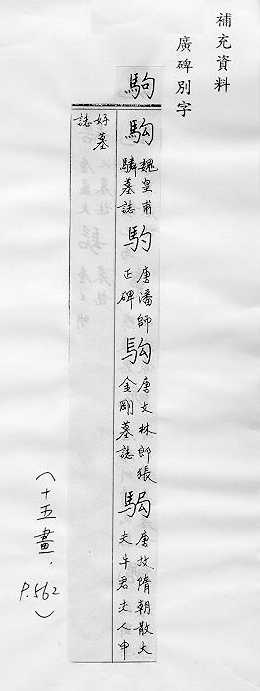 補充資料
廣碑別字
駒
駒
魏皇甫
驎墓誌
馰
唐潘師
正碑
駒
唐文林郎張
金剛墓誌
駶
唐故隋朝散大
夫牛君夫人申
好墓
誌
（十五畫，P.562）